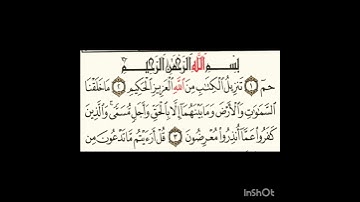 بِسْمِ اللَّهِ الرَّحْمَٰنِ الرَّحِيمِ
حمٓ ١ تَنزِيلُ الْكِتَابِ مِنَ اللَّهِ الْعَزِيزِ الْحَكِيمِ ٢ مَا خَلَقْنَا
السَّمَوَتِ وَالْأَرْضَ وَمَا بَيْنَهُمَا إِلَّا بِالْحَقِّ وَأَجَلٍ مُّسَمًّى وَالَّذِينَ
كَفَرُوا عَمَّا أُنذِرُوا مُعْرِضُونَ ٣ قُلْ أَرَءَيْتُم مَّا تَدْعُونَ مِن
InShOt